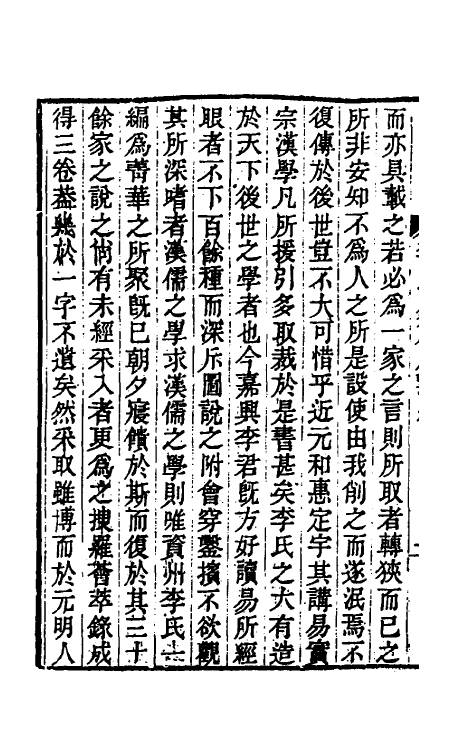 而亦具載之若必爲一家之言則所取者轉狹而已之
所非安知不爲人之所是設使由我削之而遂泯焉不
復傳於後世豈不大可惜乎近元和惠定宇其講易實
宗漢學凡所援引多取裁於是書甚矣李氏之大有造
於天下後世之學者也今嘉興李君旣方好讀易所經
眼者不下百餘種而深斥圖說之附會穿鑿擯不欲觀
其所深嗜者漢儒之學求漢儒之學則唯資州李氏一
編爲菁華之所聚旣已朝夕寢饋於斯而復於其三十
餘家之說之尙有未經采入者更爲之搜羅薈萃錄成
得三卷葢幾於一字不遺矣然采取雖博而於元明人